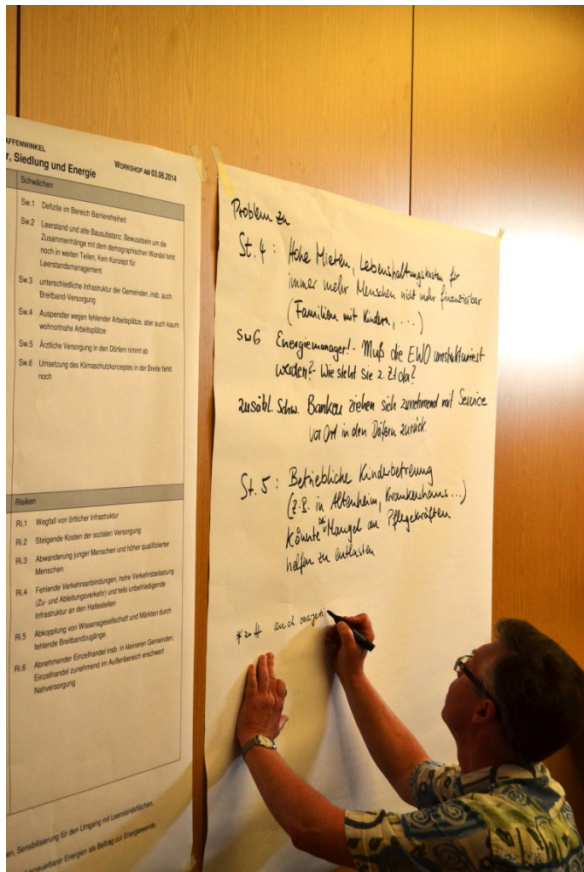 AFFENWINKEL
r, Siedlung und Energie
WORKSHOP AM 03.06.2014
Schwächen
Sw.1 Defizite im Bereich Barrierefreiheit
Sw.2 Leerstand und alte Bausubstanz, Bewusstsein um die
Zusammenhänge mit dem demographischen Wandel fehlt
noch in weiten Teilen, Kein Konzept für
Leerstandsmanagement
Sw.3 unterschiedliche Infrastruktur der Gemeinden, insb. auch
Breitband-Versorgung
Sw.4 Auspendler wegen fehlender Arbeitsplätze, aber auch kaum
wohnortnahe Arbeitsplätze
Sw.5 Ärztliche Versorgung in den Dörfern nimmt ab
Sw.6 Umsetzung des Klimaschutzkonzeptes in der Breite fehlt
noch
Risiken
Ri.1 Wegfall von örtlicher Infrastruktur
Ri.2 Steigende Kosten der sozialen Versorgung
Ri.3 Abwanderung junger Menschen und höher qualifizierter
Menschen
Ri.4 Fehlende Verkehrsanbindungen, hohe Verkehrsbelastung
(Zu- und Ableitungsverkehr) und teils unbefriedigende
Infrastruktur an den Haltestellen
Ri.5 Abkopplung von Wissensgesellschaft und Märkten durch
fehlende Breitbandzugänge
Ri.6 Abnehmender Einzelhandel insb. in kleineren Gemeinden,
Einzelhandel zunehmend im Außenbereich erschwert
Nahversorgung
en, Sensibilisierung für den Umgang mit Leerstandsflächen,
erneuerbarer Energien als Beitrag zur Energiewende.
Problem zu
St. 4 : Hohe Mieten, Lebenshaltungskosten für
immer mehr Menschen nicht mehr finanzierbar
(Familien mit Kindern, ...)
SW6 Energiemanager! - Muß die EWO umstrukturiert
werden? - Wie steht sie z. Zt da?
zusätzl. Schw. Banken ziehen sich zunehmend mit Service
vor Ort in den Dörfern zurück
St. 5 : Betriebliche Kinderbetreuung
(z.B. in Altenheim, Krankenhaus ...)
Könnte de Mangel an Pflegekräften
helfen zu entlasten
auch